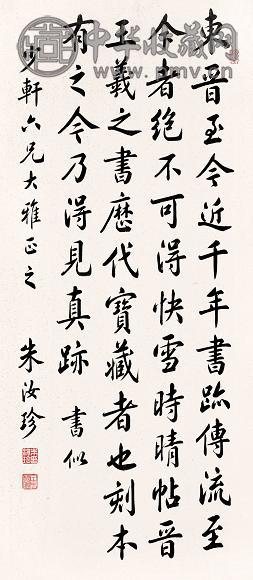 東晉至今近千年書跡傳流至
今者絕不可得快雪時晴帖晉
王羲之書歷代寶藏者也刻本
有之今乃得見真跡 書似
少軒六兄大雅正之 朱汝珍
中华收藏网